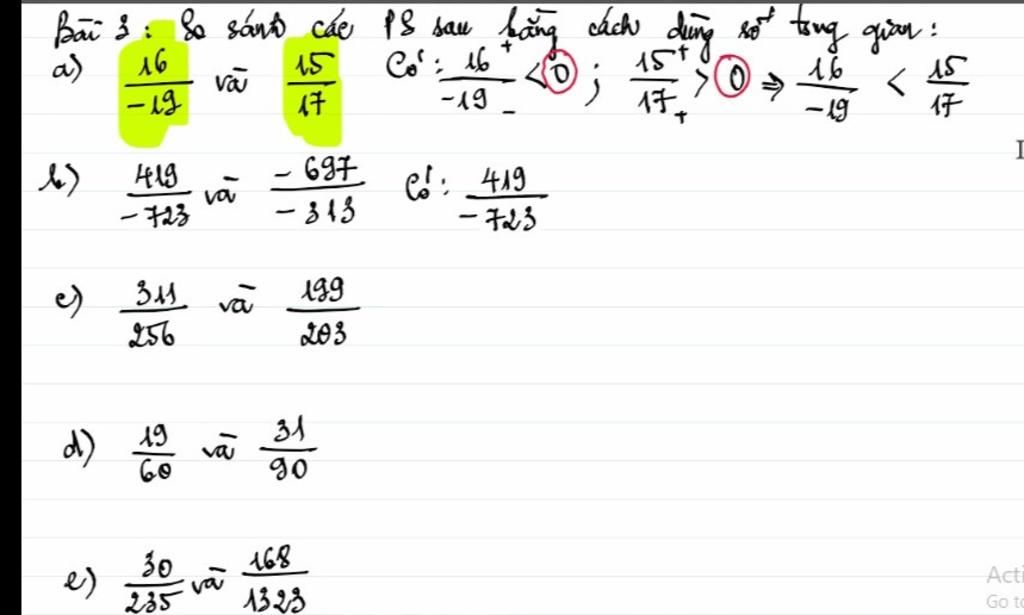 Bài 3 : So sánh các PS sau bằng cách dùng số trung gian :
a) 16/-19 và 15/17 Có : 16⁺/-19₋ < 0 ; 15⁺/17₊ > 0 ⇒ 16/-19 < 15/17
b) 419/-723 và -697/-313 Có : 419/-723
c) 311/256 và 199/203
d) 19/60 và 31/90
e) 30/235 và 168/1323
Acti
Go to